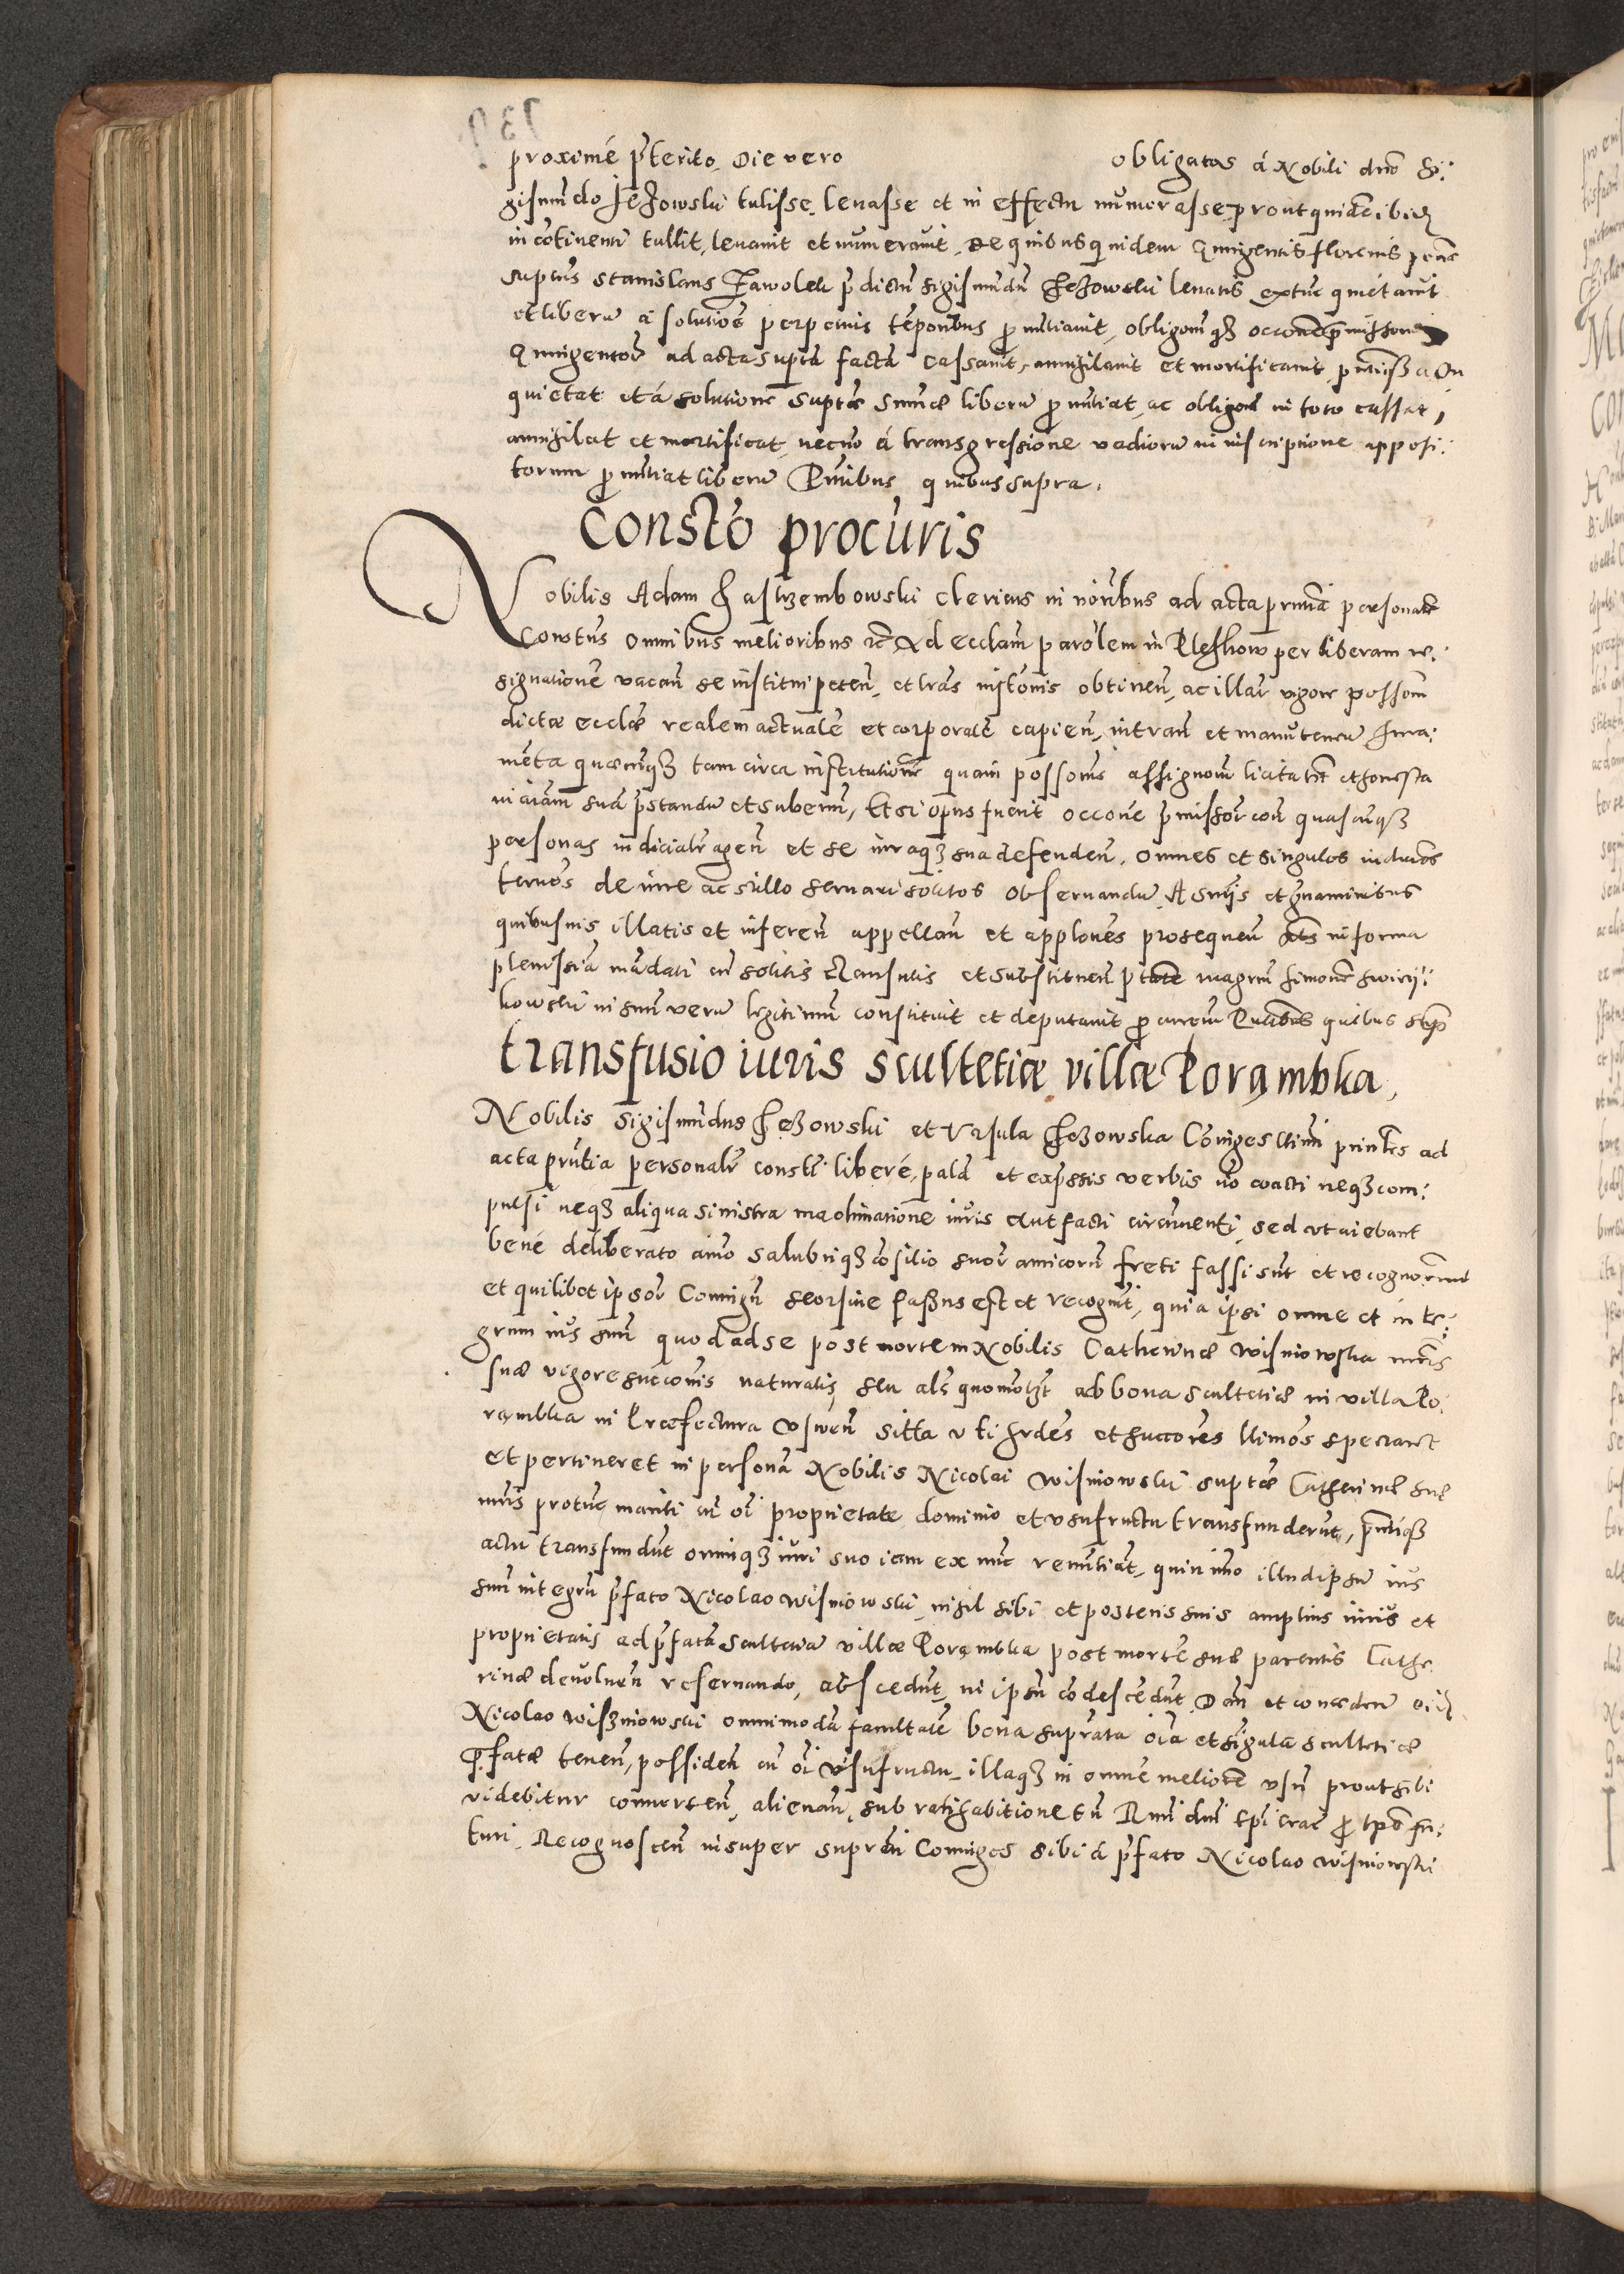 proximé pͬterito Die vero obligatas á Nobili dnō Si:
gismūdo Jeżowski tulisse, levasse et in effectu numerasse, prout quidē ibidē
in cōtinenti tullit, levavit et numeravit, De quibus quidem Quingentis florenis
supͭus Stanislaus Jawolek pͬdictū Sigismundū Jeżowski levatis extūc quietavit
et liberū á solutiōe perpetuis tēporibus pronūtiavit, obligoēmqȝ occōne pͬmissorū
Quingentorū ad acta supta factā cassavit, annihilavit et mortificavit pͬntiqȝ actu
quietat et á solutione suptæ summæ liberū pronūtiat, ac obligoem in toto cassat,
annihilat et mortificat, necnō á transgressione vadiorū in inscriptione apposi:
torum pronūtiat liberū Pntibus quibus supra.
Constō procuris
Nobilis Adam Jastrzembowski Clericus in noribus ad acta prntia personalr
Constus omnibus melioribus rc Ad ecclam parolem in Pleszow per liberam re:
signationē vacan̄ se institui peten̄, et lras instōnis obtinen̄, ac illar vigore possom̄
dictæ ecclæ realem actualē et corporalē capien̄, intran̄ et manutenen̄ Jura:
mēta quæcunqȝ tam circa institutionē quam possonis assignom̄ licita tn̄ et honesta
in aiam suā pͬstandū et subeun̄, Et si opus fuerit occone pͬmissor con̄ quascunqȝ
personas iudicialr agen̄ et se iuraqȝ sua defenden̄. omnes et singulos iudicios
termos de iure ac stillo servari solitos observandū A sn̄ijs et gravaminibus
quibusvis illatis et inferen̄ appellan̄ et applones prosequen̄ in forma
plenissia mādati cū solitis clausulis et substituen̄ ptāte magrum Simonē Swirij:
kowski in suū verū legitimū constituit et deputavit procurem Pntibus quibus sup
transfusio iuris scultetiæ villæ Porąmbka,
Nobilis Sigismūdus Jeżowski et Ursula Jeżowska Cōniges llimi printes ad
acta prntia personalr consti liberé, palā et expͬssis verbis nō coacti neqȝ com:
pulsi neqȝ aliqua sinistra machinatione iuris aut facti circūventi, sed ut aiebant
bené deliberato aimo salubriqȝ cōsilio suor amicorū freti fassi sūt et recognorūt
et quilibet ipsor Coniugū seorsive fassus est et recognit, quia ipsi omne et inte:
grum ius suū quod ad se post mortem Nobilis Catherinæ Wisniowska mris
suæ vigore succonis naturalis, seu als quomolȝt ad bona scultetiæ in villa Po:
rąmbka in Præfectura Uswen̄ sitta uti hrdes et succores llimos spectaret
et pertineret in personā Nobilis Nicolai Wisniowski suptæ Catherinæ suæ
mris protūc mariti cū oī proprietate, dominio et usufructu transfunderūt, pͬntiqȝ
actu transfundūt omniqȝ iuri suo iam ex nūc renūtiāt, quin imo illud ipsū ius
suū integrū pͬfato Nicolao Wisniowski, nihil sibi et posteris suis amplius iuris et
proprietatis ad pͬfatā Scultetiā villæ Porąmbka post mortē suæ parentis Cathe
rinæ devoluen̄ reservando, abscedūt, in ipsū cōdescēdūt Dan̄ et conceden̄ eidē
Nicolao Wisȝniowski omnimodā facultatē bona suprata oia et sigula scultetiæ
pͬfatæ tenen̄, possiden̄ cū oī usufructu, illaqȝ in omnē meliorē usū prout sibi
videbitur converten̄, alienan̄, sub ratihabitione tn̄ Rmi dni Epi Crac pro tpe fu:
turi. Recognoscen̄ insuper suprati Coniuges sibi á pͬfato Nicolao Wisniowski